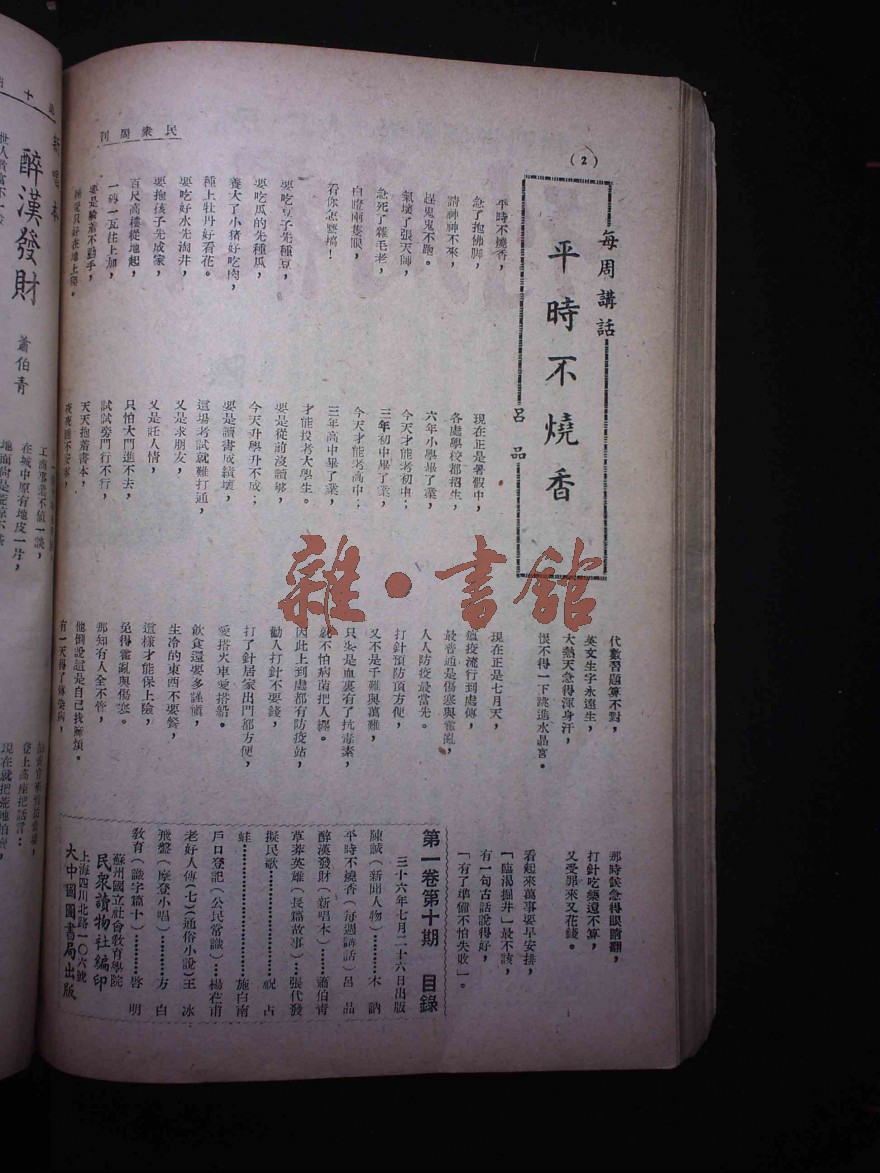 民衆周刊
(2)
每周講話
平時不燒香
呂品
平時不燒香，
急了抱佛脚，
請神神不來，
趕鬼鬼不跑。
氣壞了張天師，
急死了雜毛老，
白瞪兩隻眼，
看你怎麽搞！
要吃豆子先種豆，
要吃瓜的先種瓜，
養大了小猪好吃肉，
種上牡丹好看花。
要吃好水先淘井，
要抱孩子先成家，
百尺高樓從地起，
一磚一瓦往上加，
要是輪着不動手，
現在正是暑假中，
各處學校都招生，
六年小學畢了業，
今天才能考初中；
三年初中畢了業，
今天才能考高中；
三年高中畢了業，
才能投考大學生。
要是從前沒讀够，
今天升學升不成；
要是讀書成績壞，
這場考試就難打通，
又是求朋友，
又是託人情，
只怕大門進不去，
試試旁門行不行，
天天抱着書本，
代數習題算不對，
英文生字永遠生，
大熱天急得渾身汗，
恨不得一下跳進水晶宮。
現在正是七月天，
瘟疫流行到處傳，
最普通是傷寒與霍亂，
人人防疫最當先。
打針預防頂方便，
又不是千難與萬難，
只要是血裏有了抗毒素，
就不怕病菌把人纏。
因此上到處都有防疫站，
勸人打針不要錢，
打了針居家出門都方便，
愛搭火車愛搭船。
飲食還要多謹慎，
生冷的東西不要餐，
這樣才能保上險，
免得霍亂與傷寒。
那知有人全不管，
他倒說這是自己找麻煩。
有一天得了傳染病，
那時候急得眼睛翻，
打針吃藥還不算，
又受罪來又花錢。
看起來萬事要早安排，
「臨渴掘井」最不該，
有一句古話說得好，
「有了準備不怕失敗」。
第一卷第十期　目錄
三十六年七月二十六日出版
陳誠（新聞人物）…………木訥
平時不燒香（每週講話）呂品
醉漢發財（新唱本）…………蕭伯青
草莽英雄（長篇故事）…張代發
擬民歌…………祝占
蛙…………施白南
戶口登記（公民常識）…楊在甫
老好人傳（七）（通俗小說）王冰
飛盤（摩登小唱）…………方白
敎育（識字篇十）…………啓明
蘇州國立社會敎育學院
民衆讀物社編印
上海四川北路一〇六號
大中國圖書局出版
新唱本
醉漢發財
蕭伯青
在城中原有地皮一片，
登上高座把話言：
雜·書館